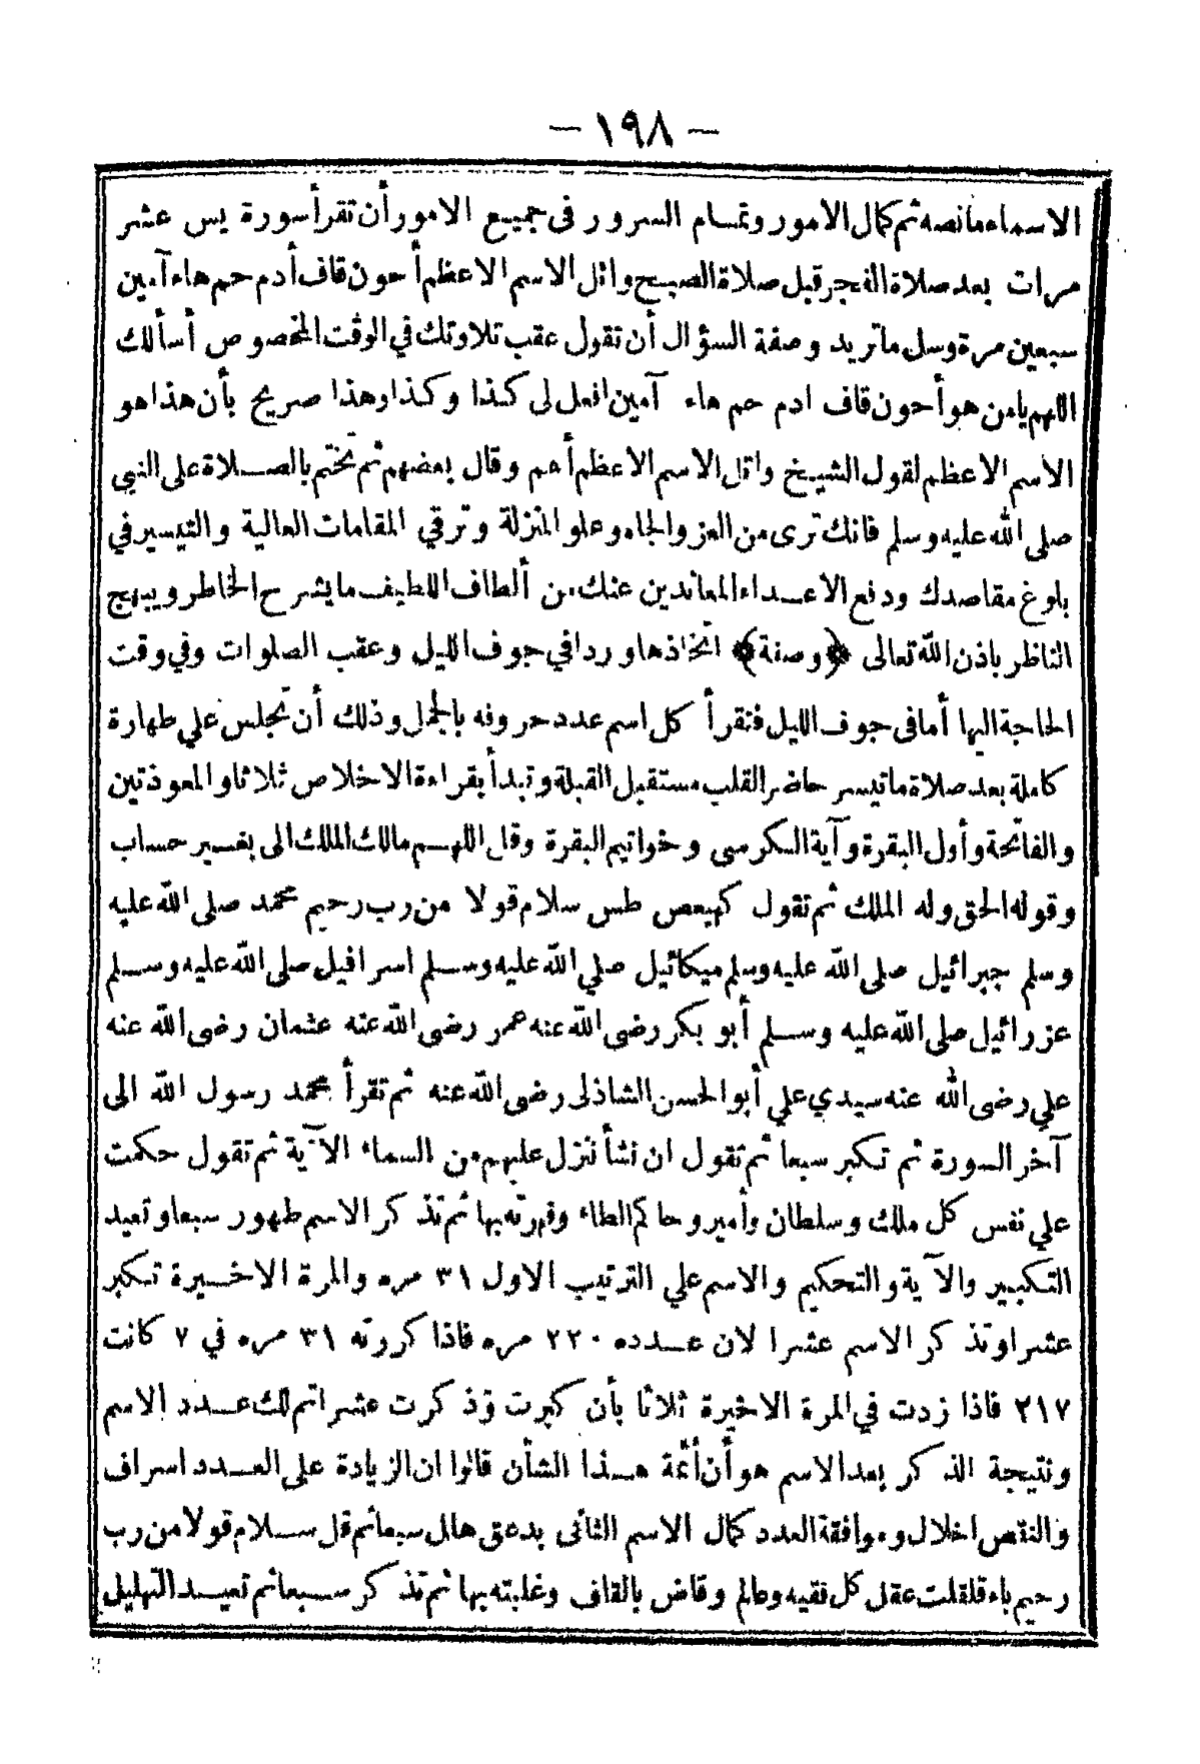 — ١٩٨ —
الاسماء مانصه ثم كمال الامور وتمام السرور فى جميع الامور أن تقرأ سورة يس عشر
مرات بعد صلاة الفجر قبل صلاة الصبح واتل الاسم الاعظم أحون قاف أدم حم هاء آمين
سبعين مرة وسل ما تريد وصفة السؤال أن تقول عقب تلاوتك في الوقت المخصوص أسألك
اللهم يا من هو أحون قاف ادم حم هاء آمين افعل لى كذا وكذا وهذا صريح بأن هذا هو
الاسم الاعظم لقول الشيخ واتل الاسم الاعظم أهم وقال بعضهم ثم تختم بالصلاة على النبي
صلى الله عليه وسلم فانك ترى من العز والجاه وعلو المنزلة وترقي المقامات العالية والتيسير في
بلوغ مقاصدك ودفع الاعداء المعاندين عنك من ألطاف اللطيف ما يشرح الخاطر ويبهج
الناظر باذن الله تعالى ﴿وصفة﴾ اتخاذها وردا في جوف الليل وعقب الصلوات وفي وقت
الحاجة اليها أما فى جوف الليل فتقرأ كل اسم عدد حروفه بالجمل وذلك أن تجلس علي طهارة
كاملة بعد صلاة ما تيسر حاضر القلب مستقبل القبلة وتبدأ بقراءة الاخلاص ثلاثا والمعوذتين
والفاتحة وأول البقرة وآية الكرسى وخواتيم البقرة وقل اللهم مالك الملك الى بغير حساب
وقوله الحق وله الملك ثم تقول كهيعص طس سلام قولا من رب رحيم محمد صلى الله عليه
وسلم جبرائيل صلى الله عليه وسلم ميكائيل صلي الله عليه وسلم اسرافيل صلى الله عليه وسلم
عزرائيل صلى الله عليه وسلم أبو بكر رضى الله عنه عمر رضى الله عنه عثمان رضى الله عنه
علي رضى الله عنه سيدي علي أبو الحسن الشاذلى رضى الله عنه ثم تقرأ محمد رسول الله الى
آخر السورة ثم تكبر سبعا ثم تقول ان نشأ ننزل عليهم من السماء الآية ثم تقول حكمت
علي نفس كل ملك وسلطان وأمير وحاكم الطاء وقهرته بها ثم تذكر الاسم طهور سبعا وتعيد
التكبير والآية والتحكيم والاسم علي الترتيب الاول ٣١ مره والمرة الاخيرة تكبر
عشرا وتذكر الاسم عشرا لان عدده ٢٢٠ مره فاذا كررته ٣١ مره في ٧ كانت
٢١٧ فاذا زدت في المرة الاخيرة ثلاثا بأن كبرت وذكرت عشرا تم لك عدد الاسم
ونتيجة الذكر بعد الاسم هو أن أئمة هذا الشأن قالوا ان الزيادة على العدد اسراف
والنقص اخلال وموافقة العدد كمال الاسم الثانى بدعق هلل سبعا ثم قل سلام قولا من رب
رحيم باء قلقلت عقل كل فقيه وعالم وقاض بالقاف وغلبته بها ثم تذكر سبعا ثم تعيد التهليل